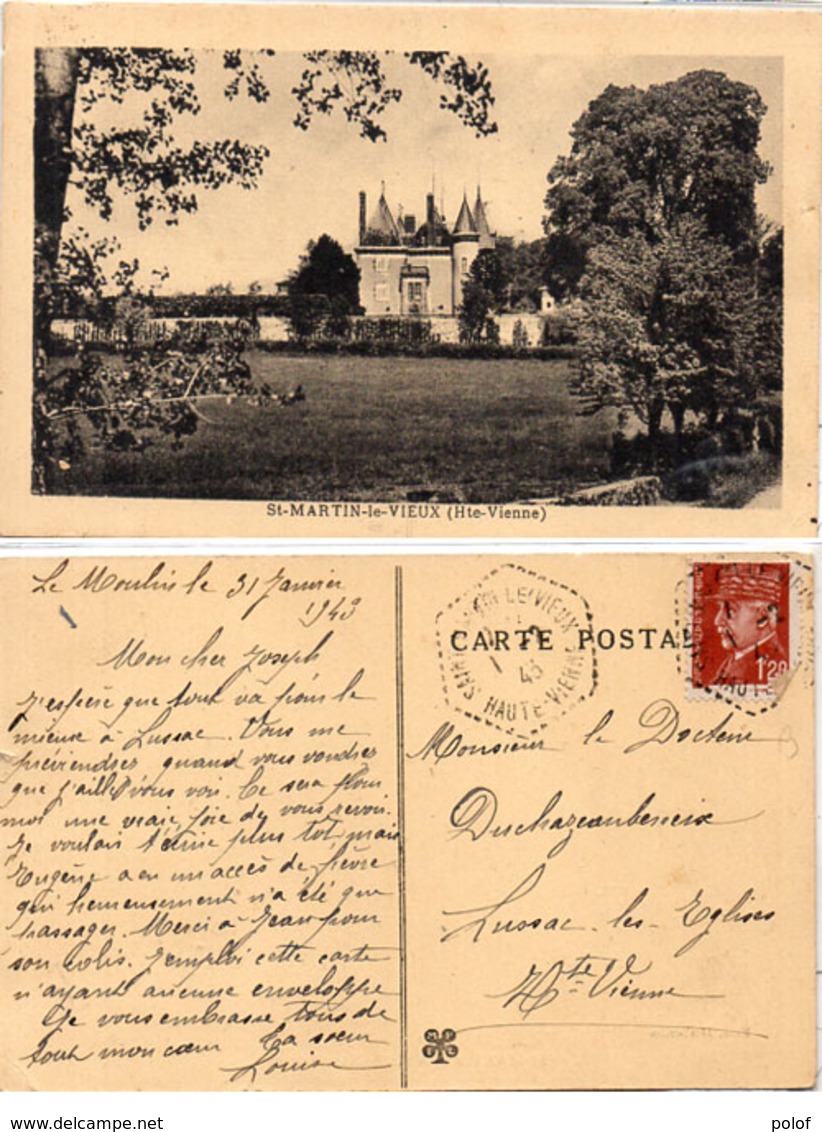 St-MARTIN-le-VIEUX (Hte-Vienne)
Le Moulin le 31 Janvier
1943
Mon cher Joseph
J'espère que tout va pour le
mieux à Lussac. Vous me
préviendrez quand vous voudrez
que j'aille vous voir. Ce sera pour
moi une vraie joie de vous revoir.
Je voulais t'écrire plus tôt, mais
Eugène a eu un accès de fièvre
qui heureusement n'a été que
passager. Merci à Jean pour
son colis. J'emploi cette carte
n'ayant aucune enveloppe
Je vous embrasse tous de
tout mon cœur Ta sœur
Louise
CARTE POSTAL
LE VIEUX
1 2
43
HAUTE-VIENNE
1f20
Monsieur le Docteur
Duchazeaubeneix
Lussac-les-Eglises
Hte Vienne
polof